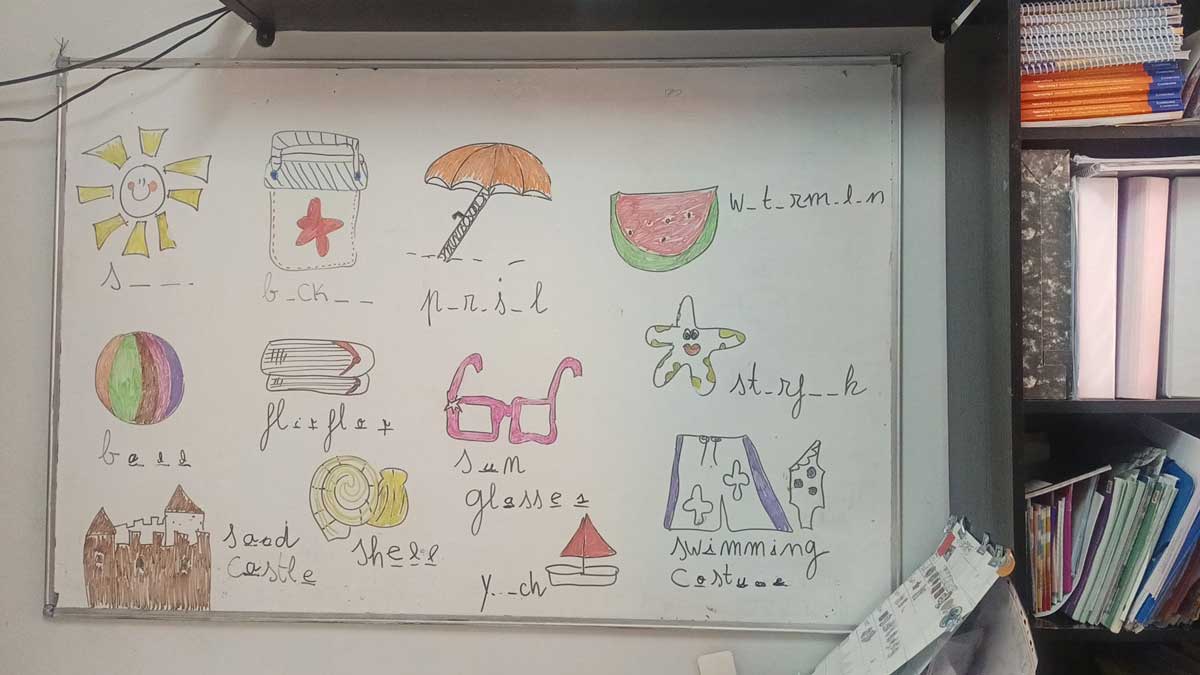 s _ _ _
b _ ck _ _
p _ r _ s _ l
w _ t _ rm _ l _ n
ball
flipflop
sun
glasses
st _ rf _ _ h
sand
castle
shell
y _ _ ch
swimming
costume